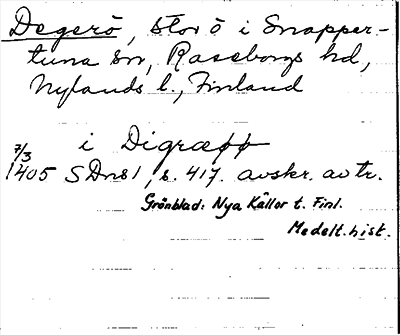 Degerö, stor ö i Snapper-
tuna sn, Raseborgs hd,
Nylands l., Finland
i Digræøø
7/3
1405 SDns 1, s. 417. avskr. av tr.
Grönblad: Nya Källor t. Finl.
Medelt. hist.